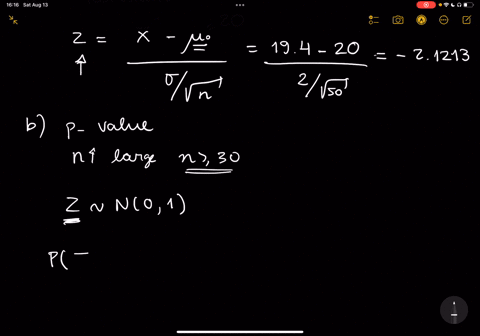 16:16 Sat Aug 13
Z = X - μ₀ / σ/√n = 19.4 - 20 / 2/√50 = - 2.1213
b) p- value
n↑ large n ≥ 30
Z ~ N(0,1)
P( -